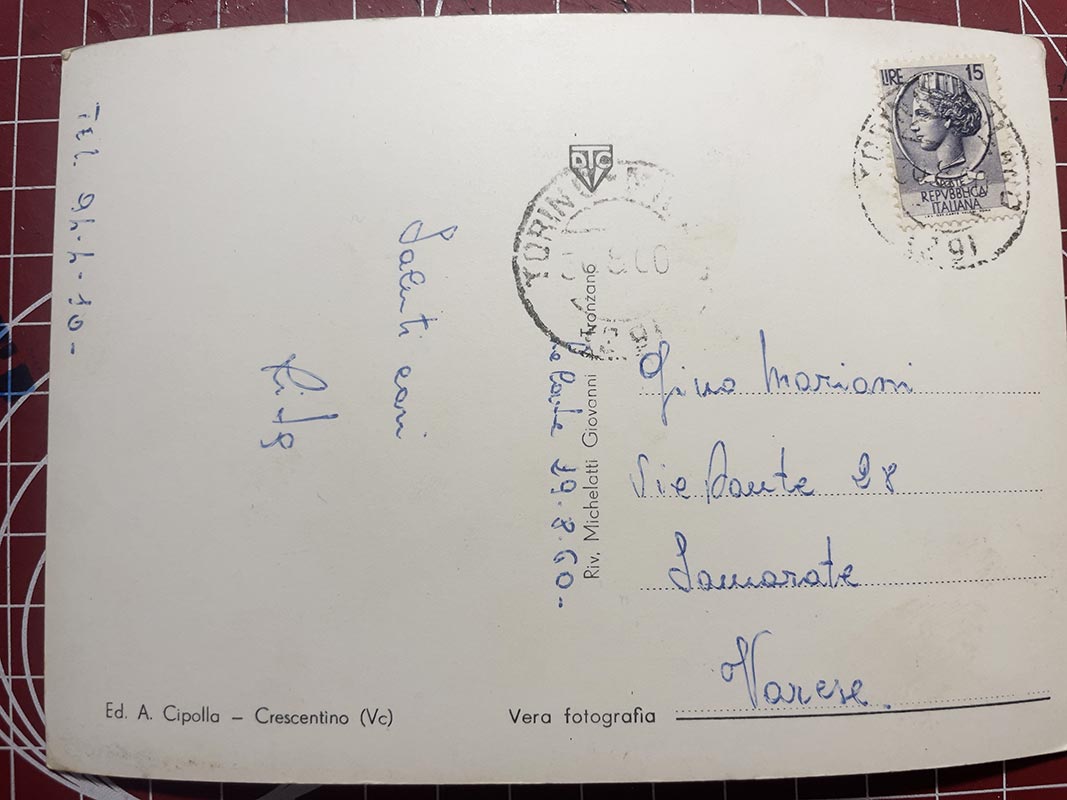 TEL. 94-4-10-
Saluti cari
19.8.60-
DTC
Riv. Michelatti Giovanni - Tronzano
LIRE 15
POSTE
REPVBBLICA
ITALIANA
TORINO
60
Gino Mariani
Via Dante 28
Samarate
Varese.
Ed. A. Cipolla – Crescentino (Vc)
Vera fotografia